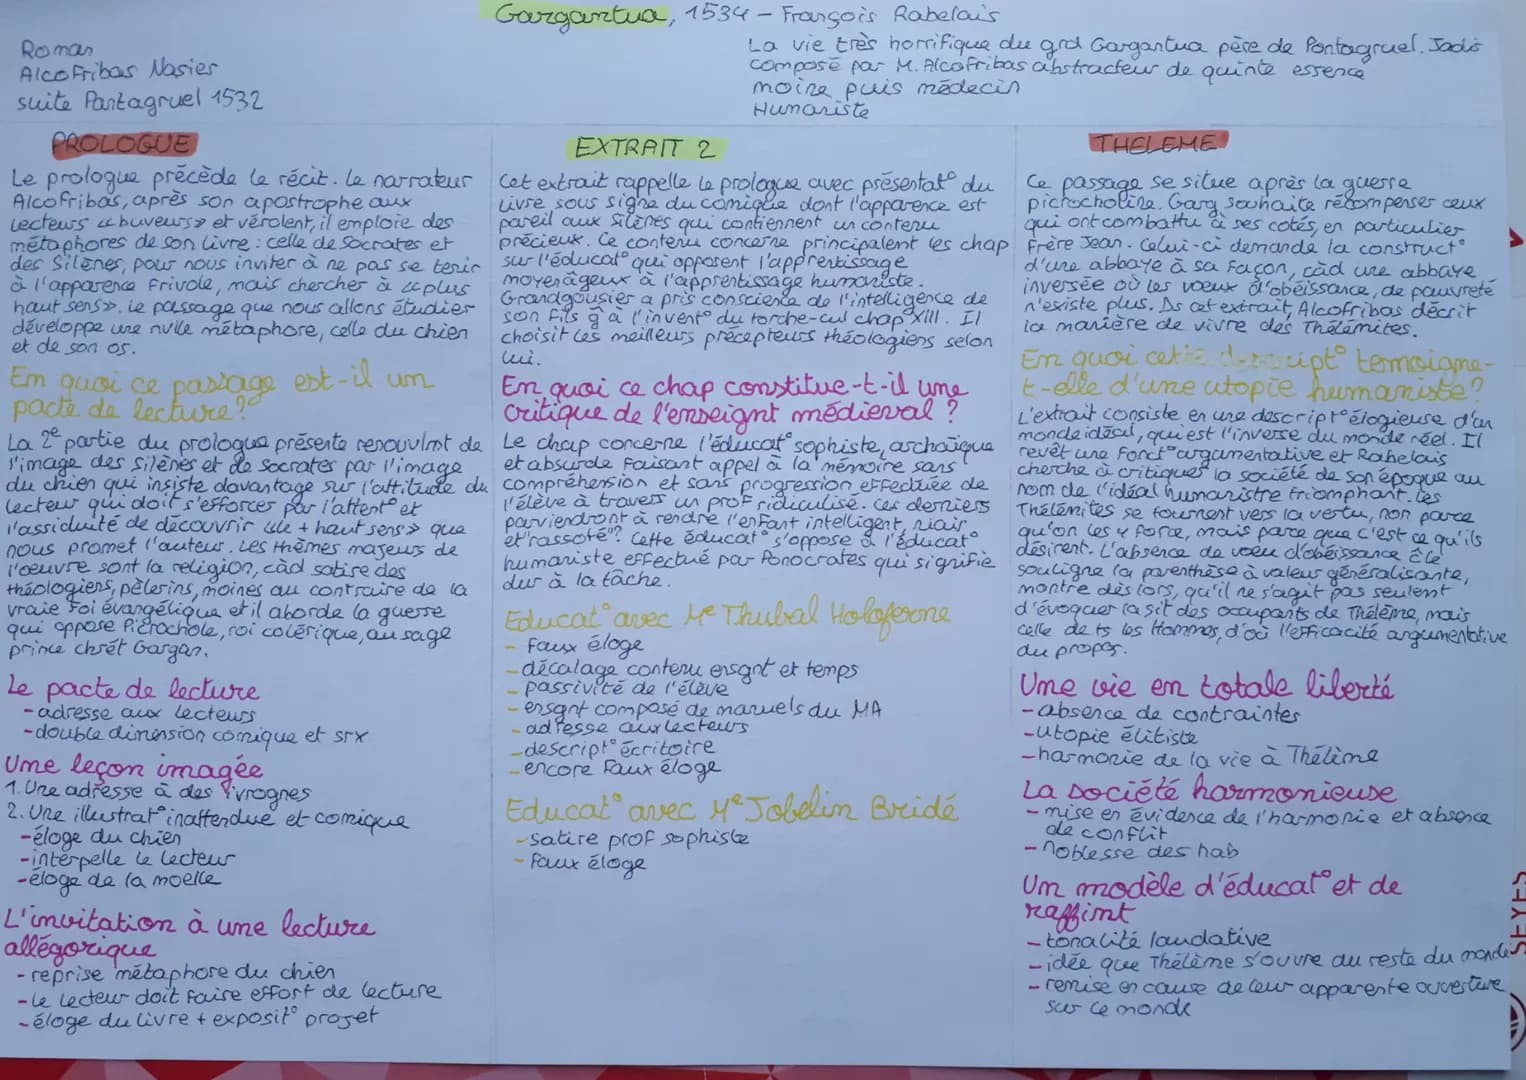 Gargantua, 1534 - François Rabelais
Roman
Alcofribas Nasier
suite Pantagruel 1532
La vie très horrifique du grd Gargantua père de Pantagruel. Jadis
composé par M. Alcofribas abstracteur de quinte essence
moine puis médecin
Humaniste
PROLOGUE
Le prologue précède le récit. Le narrateur
Alcofribas, après son apostrophe aux
lecteurs « buveurs » et vérolent, il emploie des
métaphores de son livre : celle de Socrates et
des Silènes, pour nous inviter à ne pas se tenir
à l'apparence frivole, mais chercher à « plus
haut sens ». Le passage que nous allons étudier
développe une nvlle métaphore, celle du chien
et de son os.
En quoi ce passage est-il un
pacte de lecture ?
La 2e partie du prologue présente renouvlmt de
l'image des silènes et de Socrates par l'image
du chien qui insiste davantage sur l'attitude du
lecteur qui doit s'efforcer par l'attent° et
l'assiduité de découvrir « le + haut sens » que
nous promet l'auteur. Les thèmes majeurs de
l'oeuvre sont la religion, càd satire des
théologiens, pèlerins, moines au contraire de la
vraie foi évangélique et il aborde la guerre
qui oppose Picrochole, roi colérique, au sage
prince chrét Gargan.
Le pacte de lecture
- adresse aux lecteurs
- double dimension comique et srx
Une leçon imagée
1. Une adresse à des ivrognes
2. Une illustrat° inattendue et comique
- éloge du chien
- interpelle le lecteur
- éloge de la moelle
L'invitation à une lecture
allégorique
- reprise métaphore du chien
- le lecteur doit faire effort de lecture
- éloge du livre + exposit° projet
EXTRAIT 2
Cet extrait rappelle le prologue avec présentat° du
livre sous signe du comique dont l'apparence est
pareil aux Silènes qui contiennent un contenu
précieux. Ce contenu concerne principalent les chap
sur l'éducat° qui opposent l'apprentissage
moyenâgeux à l'apprentissage humaniste.
Grandgousier a pris conscience de l'intelligence de
son fils g à l'invent° du torche-cul chap XIII. Il
choisit les meilleurs précepteurs théologiens selon
lui.
En quoi ce chap constitue-t-il une
critique de l'enseignt médieval ?
Le chap concerne l'éducat° sophiste, archaïque
et absurde faisant appel à la mémoire sans
compréhension et sans progression effectuée de
l'élève à travers un prof ridiculisé. Ces derniers
parviendront à rendre l'enfant intelligent, niais
et "rassoté". Cette éducat° s'oppose à l'éducat°
humaniste effectué par Ponocrates qui signifie
dur à la tâche.
Educat° avec Me Thubal Holoferne
- faux éloge
- décalage contenu ensgnt et temps
- passivité de l'élève
- ensgnt composé de manuels du MA
- adresse aux lecteurs
- descript° écritoire
- encore faux éloge
Educat° avec Me Jobelin Bridé
- satire prof sophiste
- faux éloge
THELEME
Ce passage se situe après la guerre
pichocholine. Garg souhaite récompenser ceux
qui ont combattu à ses cotés, en particulier
frère Jean. Celui-ci demande la construct°
d'une abbaye à sa façon, càd une abbaye
inversée où les voeux d'obéissance, de pauvreté
n'existe plus. Ds cet extrait, Alcofribas décrit
la manière de vivre des Thélémites.
En quoi cette descript° temoigne-
t-elle d'une utopie humaniste ?
L'extrait consiste en une descript° élogieuse d'un
monde idéal, qui est l'inverse du monde réel. Il
revêt une fonct° argumentative et Rabelais
cherche à critiquer la société de son époque au
nom de l'idéal humanistre triomphant. Les
Thélémites se tournent vers la vertu, non parce
qu'on les y force, mais parce que c'est ce qu'ils
désirent. L'absence de voeu d'obéissance
souligne la parenthèse à valeur généralisante,
montre dès lors, qu'il ne s'agit pas seulent
d'évoquer la sit des occupants de Thélème, mais
celle de ts les Hommes, d'où l'efficacité argumentative
du propos.
Une vie en totale liberté
- absence de contraintes
- utopie élitiste
- harmonie de la vie à Thélème
La société harmonieuse
- mise en évidence de l'harmonie et absence
de conflit
- noblesse des hab
Un modèle d'éducat° et de
raffimt
- tonalité laudative
- idée que Thélème s'ouvre au reste du monde
- remise en cause de leur apparente ouverture
sur ce monde
SEYES